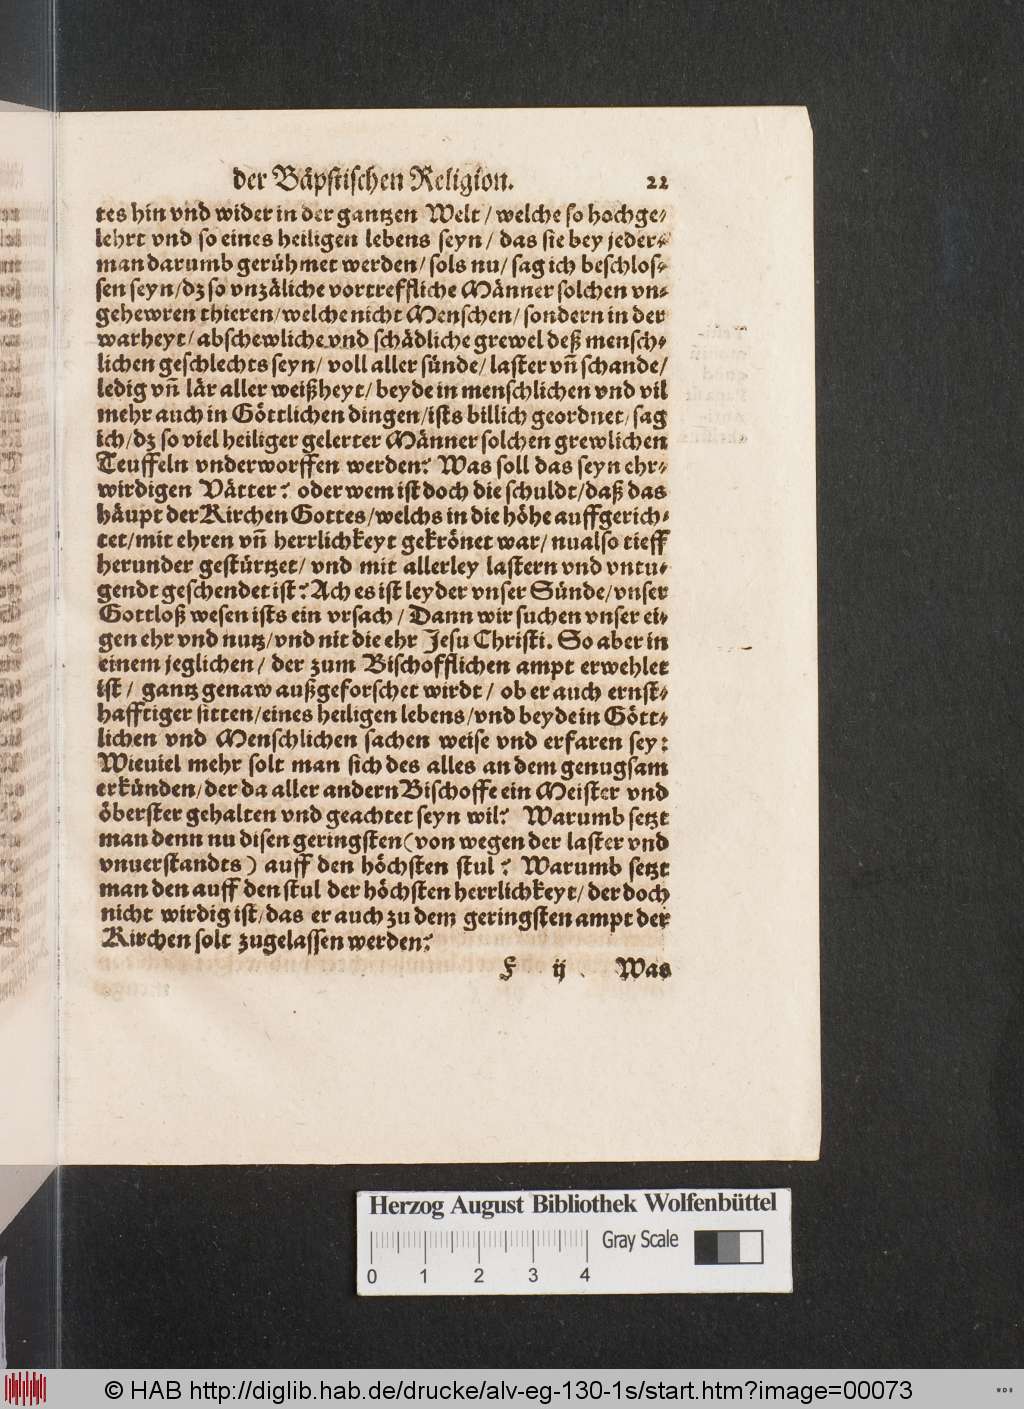 der Bäpstischen Religion. 22
tes hin vnd wider in der gantzen Welt / welche so hochge⸗
lehrt vnd so eines heiligen lebens seyn / das sie bey jeder⸗
man darumb gerühmet werden / sols nu / sag ich beschlos⸗
sen seyn / dz so vnzäliche vortreffliche Männer solchen vn⸗
gehewren thieren / welche nicht Menschen / sondern in der
warheyt / abschewliche vnd schädliche grewel deß mensch⸗
lichen geschlechts seyn / voll aller sünde / laster vñ schande /
ledig vñ lär aller weißheyt / beyde in menschlichen vnd vil
mehr auch in Göttlichen dingen / ists billich geordnet / sag
ich / dz so viel heiliger gelerter Männer solchen grewlichen
Teuffeln vnderworffen werden? Was soll das seyn ehr⸗
wirdigen Vätter? oder wem ist doch die schuldt / daß das
häupt der Kirchen Gottes / welchs in die höhe auffgerich⸗
tet / mit ehren vñ herrlichkeyt gekrönet war / nu also tieff
herunder gestürtzet / vnd mit allerley lastern vnd vntu⸗
gendt geschendet ist? Ach es ist leyder vnser Sünde / vnser
Gottloß wesen ists ein vrsach / Dann wir suchen vnser ei⸗
gen ehr vnd nutz / vnd nit die ehr Jesu Christi. So aber in
einem jeglichen / der zum Bischofflichen ampt erwehlet
ist / gantz genaw außgeforschet wirdt / ob er auch ernst⸗
hafftiger sitten / eines heiligen lebens / vnd beyde in Gött⸗
lichen vnd Menschlichen sachen weise vnd erfaren sey:
Wieuiel mehr solt man sich des alles an dem genugsam
erkünden / der da aller andern Bischoffe ein Meister vnd
öberster gehalten vnd geachtet seyn wil? Warumb setzt
man denn nu disen geringsten (von wegen der laster vnd
vnuerstandts) auff den höchsten stul? Warumb setzt
man den auff den stul der höchsten herrlichkeyt / der doch
nicht wirdig ist / das er auch zu dem geringsten ampt der
Kirchen solt zugelassen werden?
F ij Was
Herzog August Bibliothek Wolfenbüttel
Gray Scale
0 1 2 3 4
© HAB http://diglib.hab.de/drucke/alv-eg-130-1s/start.htm?image=00073